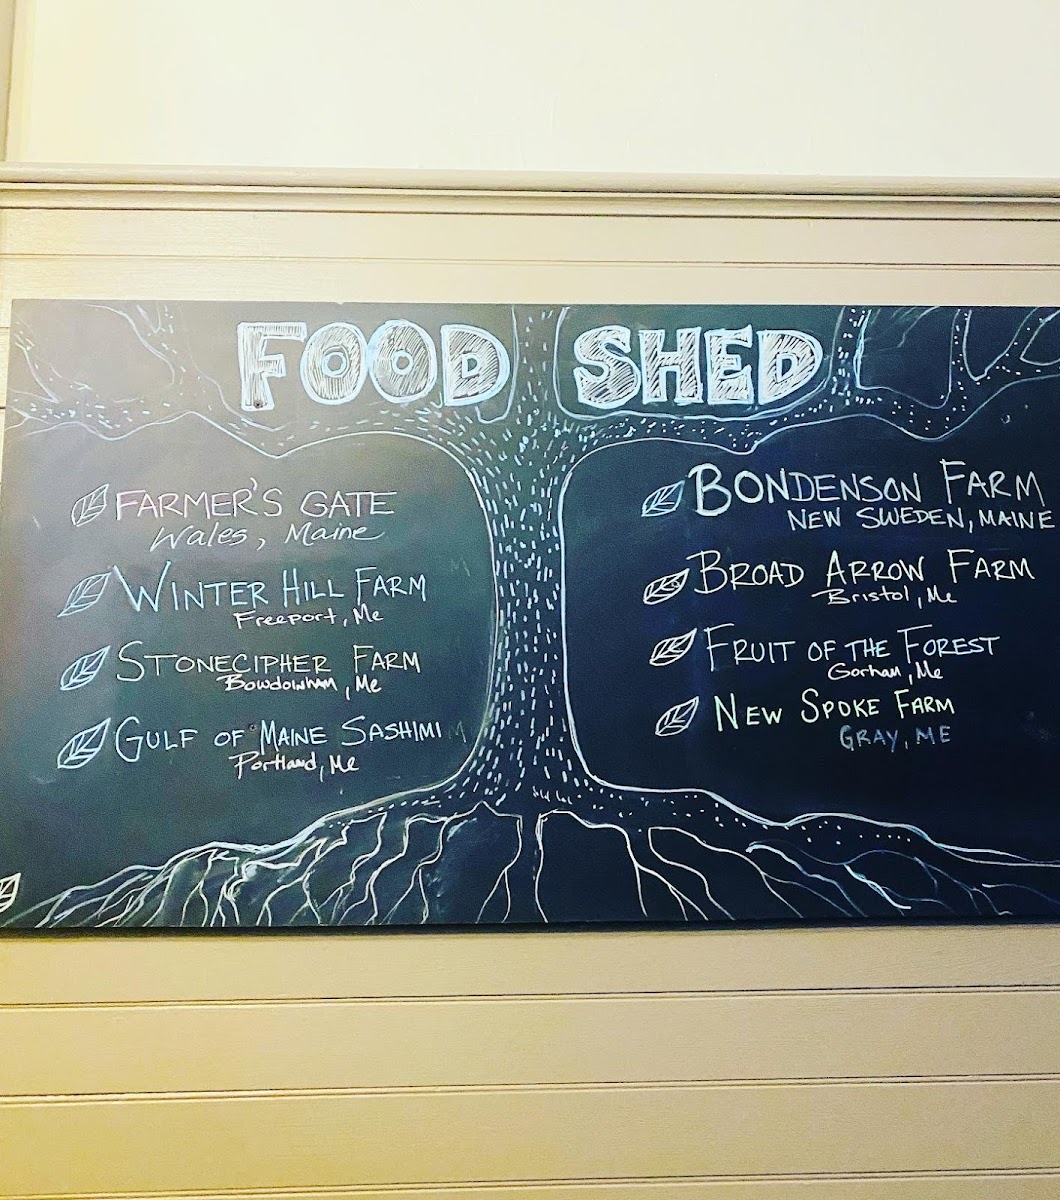 FOOD SHED
FARMER'S GATE
Wales, Maine
WINTER HILL FARM
Freeport, Me
STONECIPHER FARM
Bowdoinham, Me
GULF OF MAINE SASHIMI
Portland, Me
BONDENSON FARM
NEW SWEDEN, MAINE
BROAD ARROW FARM
Bristol, Me
FRUIT OF THE FOREST
Gorham, Me
NEW SPOKE FARM
GRAY, ME